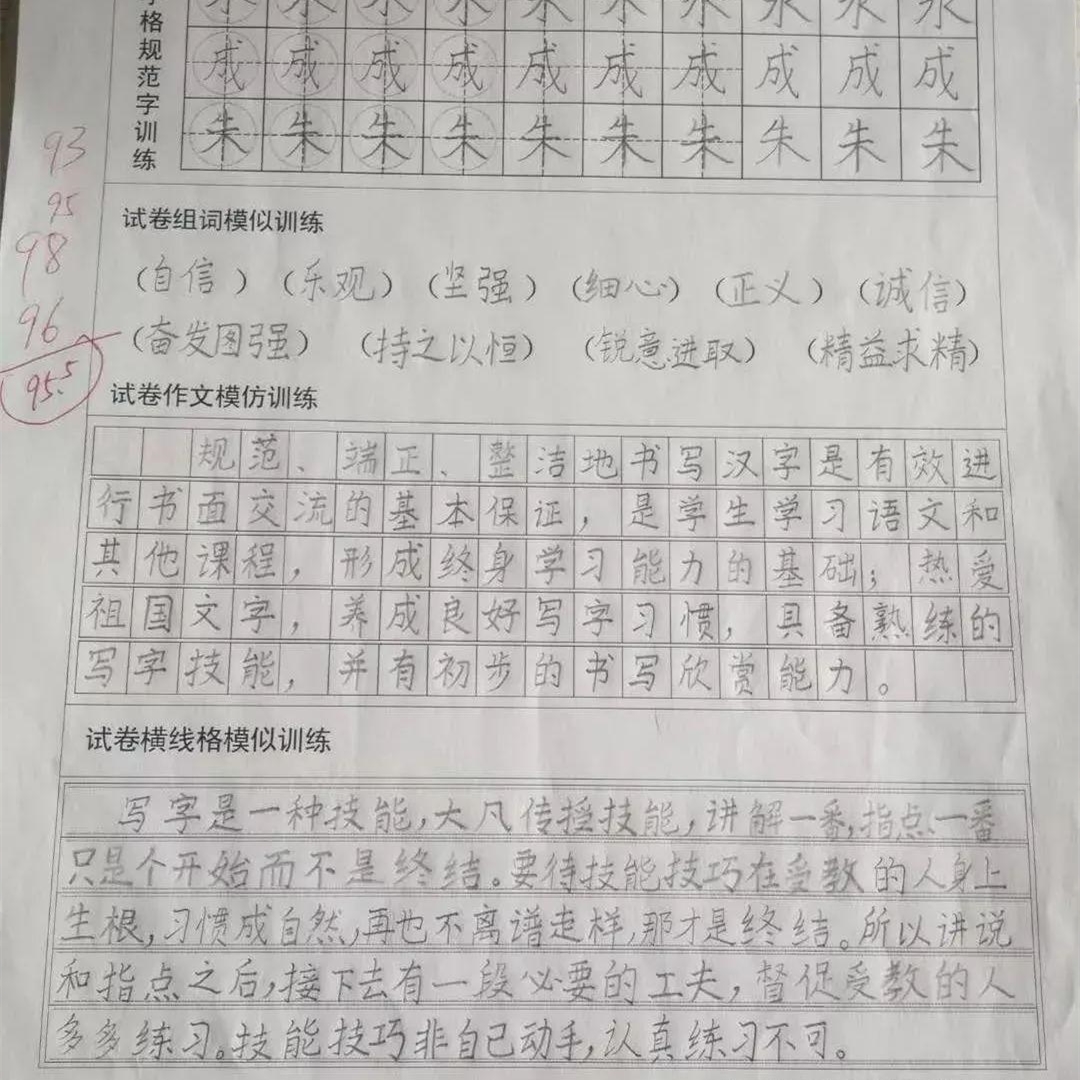 永 永 永 永 永 永 永 永 永 永
格规范字训练
成 成 成 成 成 成 成 成 成 成
朱 朱 朱 朱 朱 朱 朱 朱 朱 朱
93
95
98
96
95.5
试卷组词模似训练
(自信) (乐观) (坚强) (细心) (正义) (诚信)
(奋发图强) (持之以恒) (锐意进取) (精益求精)
试卷作文模仿训练
规范、端正、整洁地书写汉字是有效进
行书面交流的基本保证，是学生学习语文和
其他课程，形成终身学习能力的基础；热爱
祖国文字，养成良好写字习惯，具备熟练的
写字技能，并有初步的书写欣赏能力。
试卷横线格模似训练
写字是一种技能,大凡传授技能,讲解一番,指点一番
只是个开始而不是终结。要待技能技巧在受教的人身上
生根,习惯成自然,再也不离谱走样,那才是终结。所以讲说
和指点之后,接下去有一段必要的工夫,督促受教的人
多多练习。技能技巧非自己动手,认真练习不可。